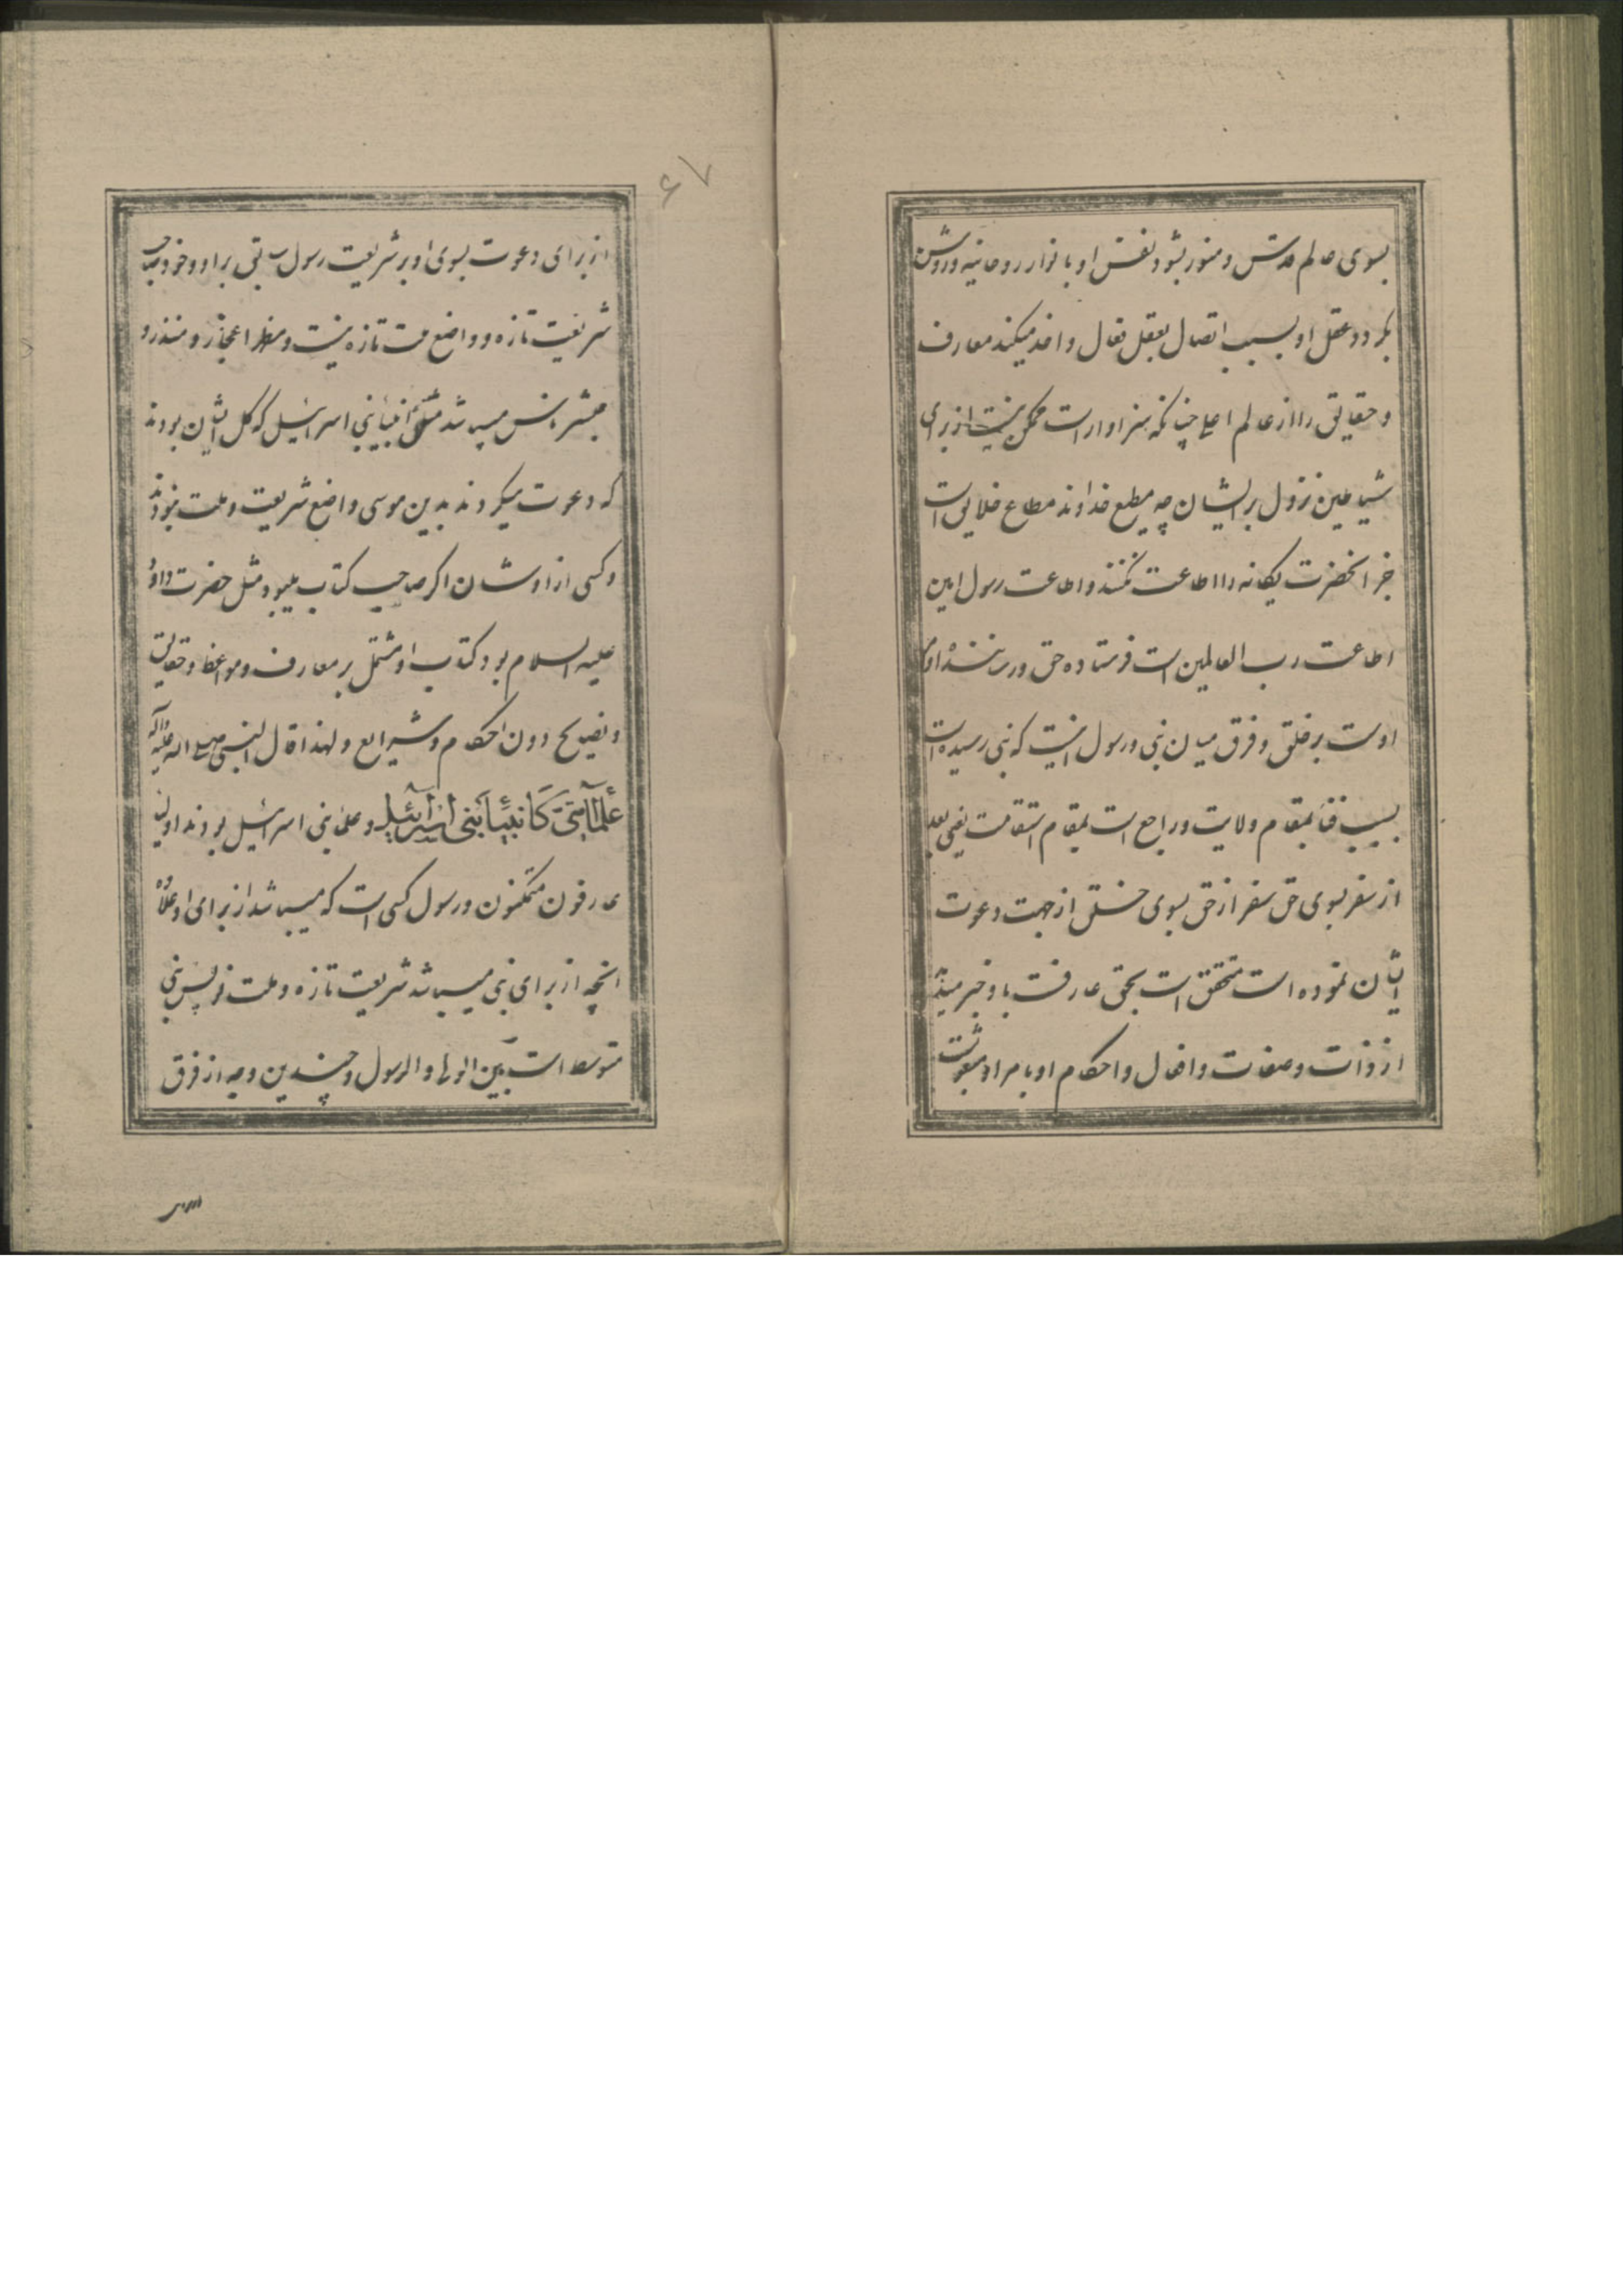 بسوی عالم قدس و منور بشود نفس او بانوار روحانیه و روشن
بگردد عقل او بسبب اتصال بعقل فعال و اخذ میکند معارف
و حقایق را از عالم اعلی چنانکه سزاوار است ممکن نیست از برای
شیاطین نزول بر ایشان چه مطیع خداوند مطاع خلایق است
جز انحضرت یگانه را اطاعت نکنند و اطاعت رسول امین
اطاعت رب العالمین است فرستاده حق و رساننده اوامر
اوست بر خلق و فرق میان نبی و رسول اینست که نبی رسیده است
بسبب فنا بمقام ولایت و راجع است بمقام استقامت یعنی بعد
از سفر بسوی حق سفر از حق بسوی خلق از جهت دعوت
ایشان نموده است متحقق است بحق عارفست باو خبر میدهد
از ذات و صفات و افعال و احکام او بامر او مبعوثست
۶۷
از برای دعوت بسوی او بر شریعت رسول سابقی بر او و خود صاحب
شریعت تازه و واضع ملت تازه نیست و مظهر اعجاز و منذر و
مبشر ناس میباشد مثل انبیای بنی اسرائیل که کل ایشان بودند
که دعوت میکردند بدین موسی و اضع شریعت و ملت نبودند
و کسی از اوشان اگر صاحب کتاب میبود مثل حضرت داود
علیه السلام بود کتاب او مشتمل بر معارف و مواعظ و حقایق
و نصایح دون احکام و شرایع و لهذا قال النبی صلی الله علیه و آله
عُلَمآءُ اُمَّتی کَاَنبیآءِ بَنی اِسرآئیل و علمای بنی اسرائیل بودند اولیای
عارفون متمکنون و رسول کسی است که میباشد از برای او علاوه
انچه از برای نبی میباشد شریعت تازه و ملت نو پس نبی
متوسط است بین الولی و الرسول و چندین وجه از فرق